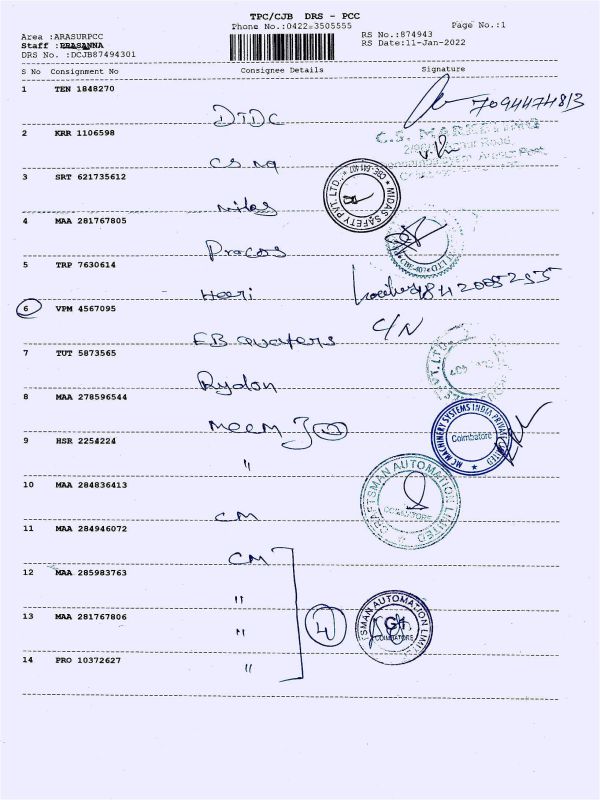 TPC/CJB DRS - PCC
Phone No.:0422-3505555
Page No.:1
Area :ARASURPCC
RS No.:874943
Staff :PRASANNA
RS Date:11-Jan-2022
DRS No. :DCJB87494301
S No Consignment No Consignee Details Signature
1 TEN 1848270
DTDC
7094474813
2 KRR 1106598
CS MA
C.S. MARKETING
3 SRT 621735612
Midas
MIDAS SAFETY PVT. LTD.
4 MAA 281767805
Procos
5 TRP 7630614
Heeri
6 VPM 4567095
C/N
EB Quaters
7 TUT 5873565
Rydon
8 MAA 278596544
MCCM
MC MACHINERY SYSTEMS INDIA PRIVATE LIMITED
Coimbatore
9 HSR 2254224
"
10 MAA 284836413
CM
CRAFTSMAN AUTOMATION LIMITED
11 MAA 284946072
CM
12 MAA 285983763
"
13 MAA 281767806
"
4
14 PRO 10372627
"